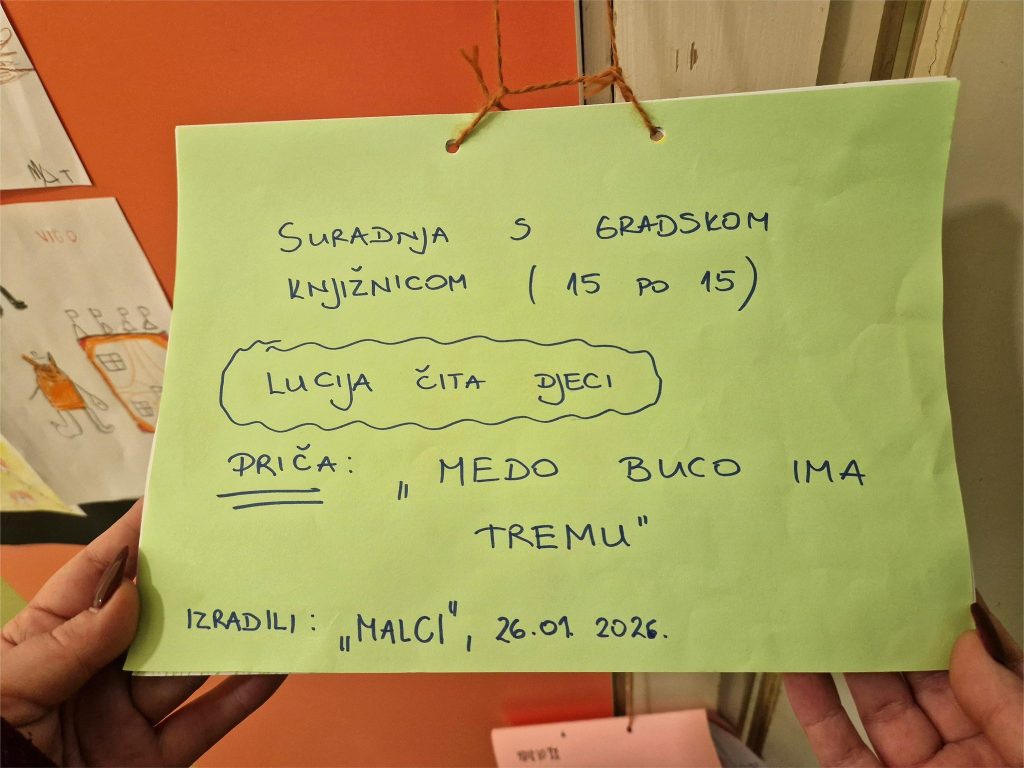 SURADNJA S GRADSKOM
KNJIŽNICOM (15 PO 15)
LUCIJA ČITA DJECI
PRIČA: „MEDO BUCO IMA
TREMU"
IZRADILI: „MALCI", 26.01. 2026.
VIGO
MAT